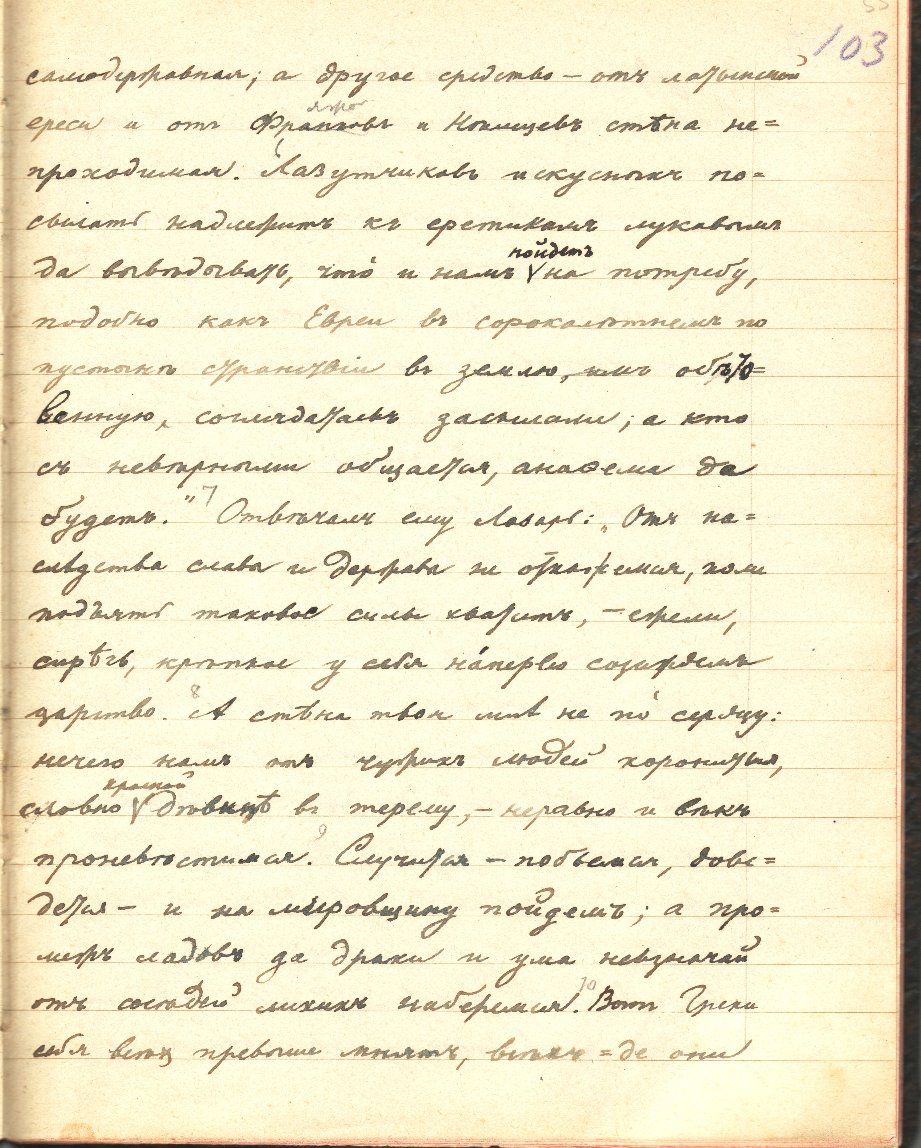 103
самодержавная; а другое средство – отъ латынской
ереси и отъ Франковъ и Немцевъ стѣна не=
проходимая. Лазутчиковъ искусныхъ по=
сылать надлежитъ къ еретикамъ лукавымъ
да вывѣдывать, что́ и намъ пойдетъ на потребу,
подобно какъ Евреи въ сорокалѣтнемъ по
пустынѣ странствіи въ землю, имъ обѣто=
ванную, соглядатаевъ засылали; а кто
съ невѣрными общается, анаѳема да
будетъ." 7 Отвѣчалъ ему Лазарь: „Отъ на=
слѣдства славы и державы не откажемся, коли
подъять таковое силы хватитъ, – ежели,
сирѣчь, крѣпкое у себя на́перво созиждемъ
царство. 8 А стѣна твоя мнѣ не по́ сердцу:
нечего намъ отъ чужихъ людей хорониться,
словно красной дѣвицѣ въ терему, – неравно и вѣкъ
проневѣстимся. 9 Случится – побьемся, дове=
дется – и на мировщину пойдемъ; а про=
межъ ладовъ да драки и ума невзначай
отъ сосѣдей лихихъ наберемся. 10 Вотъ Греки
себя всѣхъ превыше мнятъ, всѣхъ=де они